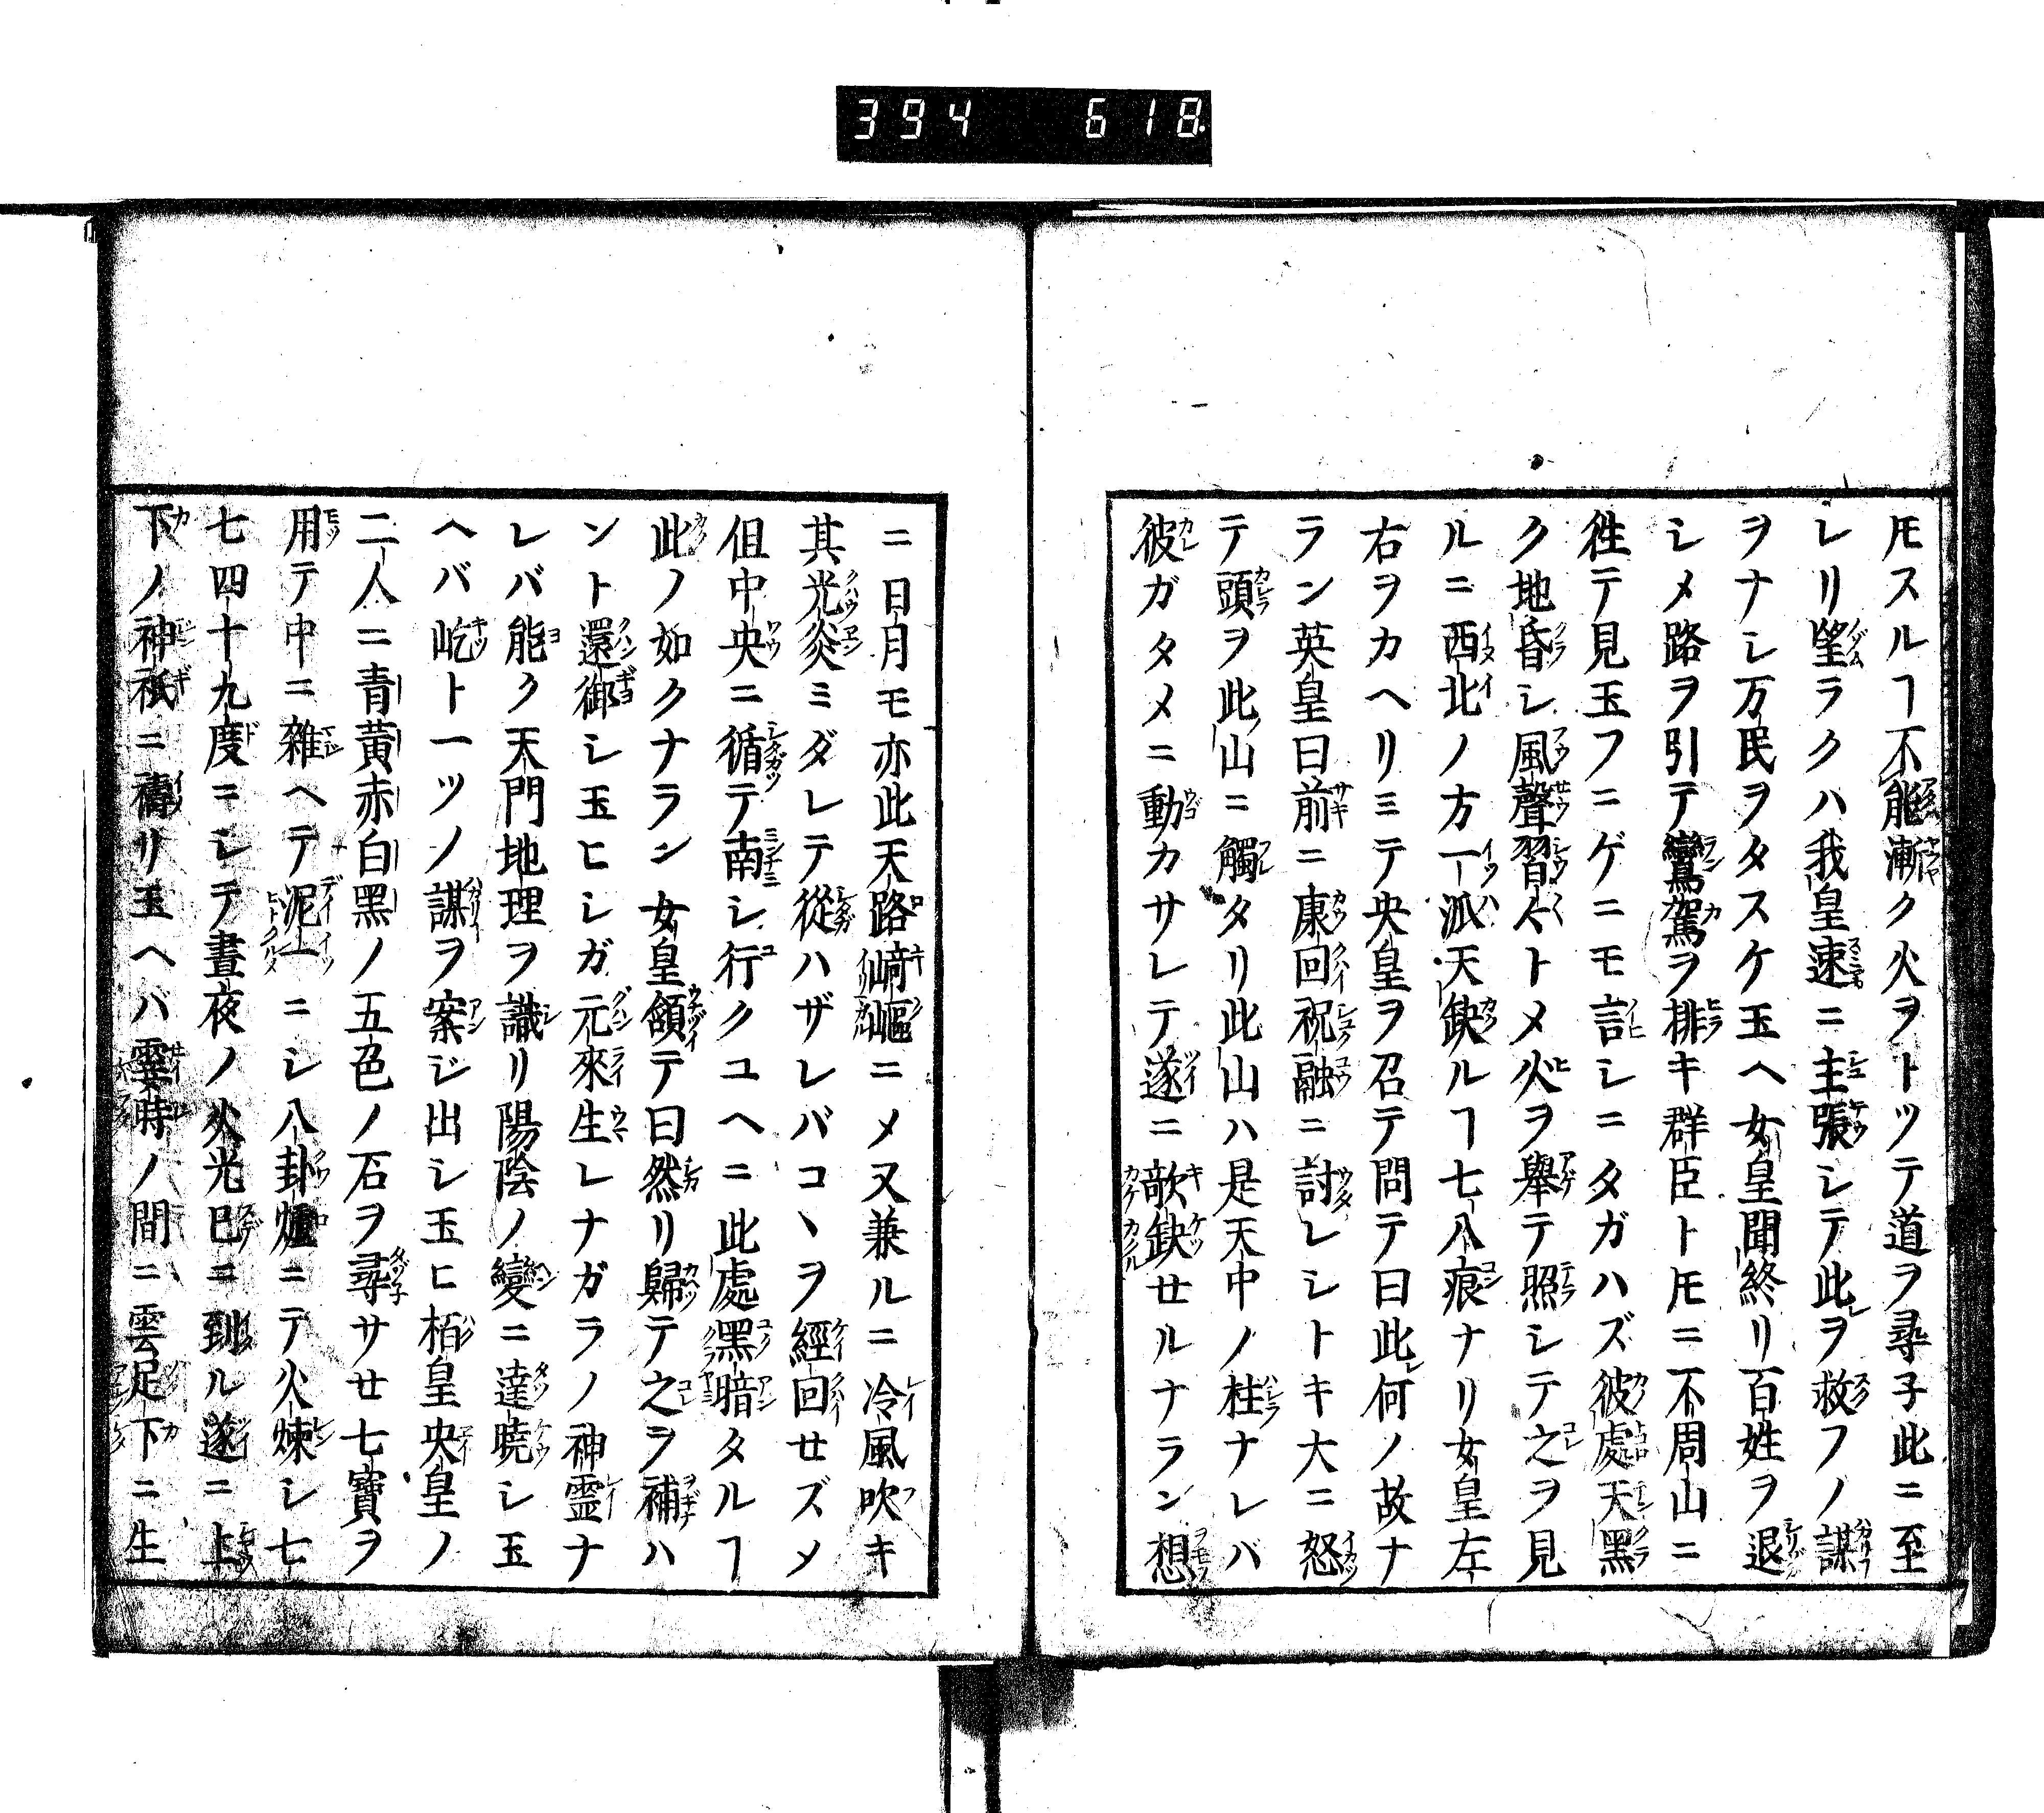 394 618
𪜈スルヿ不能漸ク火ヲトツテ道ヲ尋子此ニ至
レリ望ラクハ我皇速ニ主張シテ此ヲ救フノ謀
ヲナシ万民ヲタスケ玉ヘ女皇聞終リ百姓ヲ退
シメ路ヲ引テ鸞駕ヲ排キ群臣ト𪜈ニ不周山ニ
徃テ見玉フニゲニモ言シニタガハズ彼處天黑
ク地昏シ風聲習〱トメ火ヲ舉テ照シテ之ヲ見
ルニ西北ノ方一派天缺ルヿ七八痕ナリ女皇左
右ヲカヘリミテ央皇ヲ召テ問テ曰此何ノ故ナ
ラン英皇曰前ニ康回祝融ニ討レシトキ大ニ怒
テ頭ヲ此山ニ觸タリ此山ハ是天中ノ柱ナレバ
彼ガタメニ動カサレテ遂ニ欹缺セルナラン想
ニ日月モ亦此天路﨑嶇ニメ又兼ルニ冷風吹キ
其光炎ミダレテ從ハザレバコヽヲ經回セズメ
但中央ニ循テ南シ行クユヘニ此處黑暗タルヿ
此ノ如クナラン女皇頷テ曰然リ歸テ之ヲ補ハ
ント還御シ玉ヒシガ元來生レナガラノ神靈ナ
レバ能ク天門地理ヲ識リ陽陰ノ變ニ達曉シ玉
ヘバ屹ト一ツノ謀ヲ案ジ出シ玉ヒ栢皇央皇ノ
二人ニ青黃赤白黑ノ五色ノ石ヲ尋サセ七寶ヲ
用テ中ニ雜ヘテ泥土ニシ八卦爐ニテ火煉シ七
七四十九度ニシテ晝夜ノ火光已ニ到ル遂ニ上
下ノ神祇ニ禱リ玉ヘバ霎時ノ間ニ雲足下ニ生